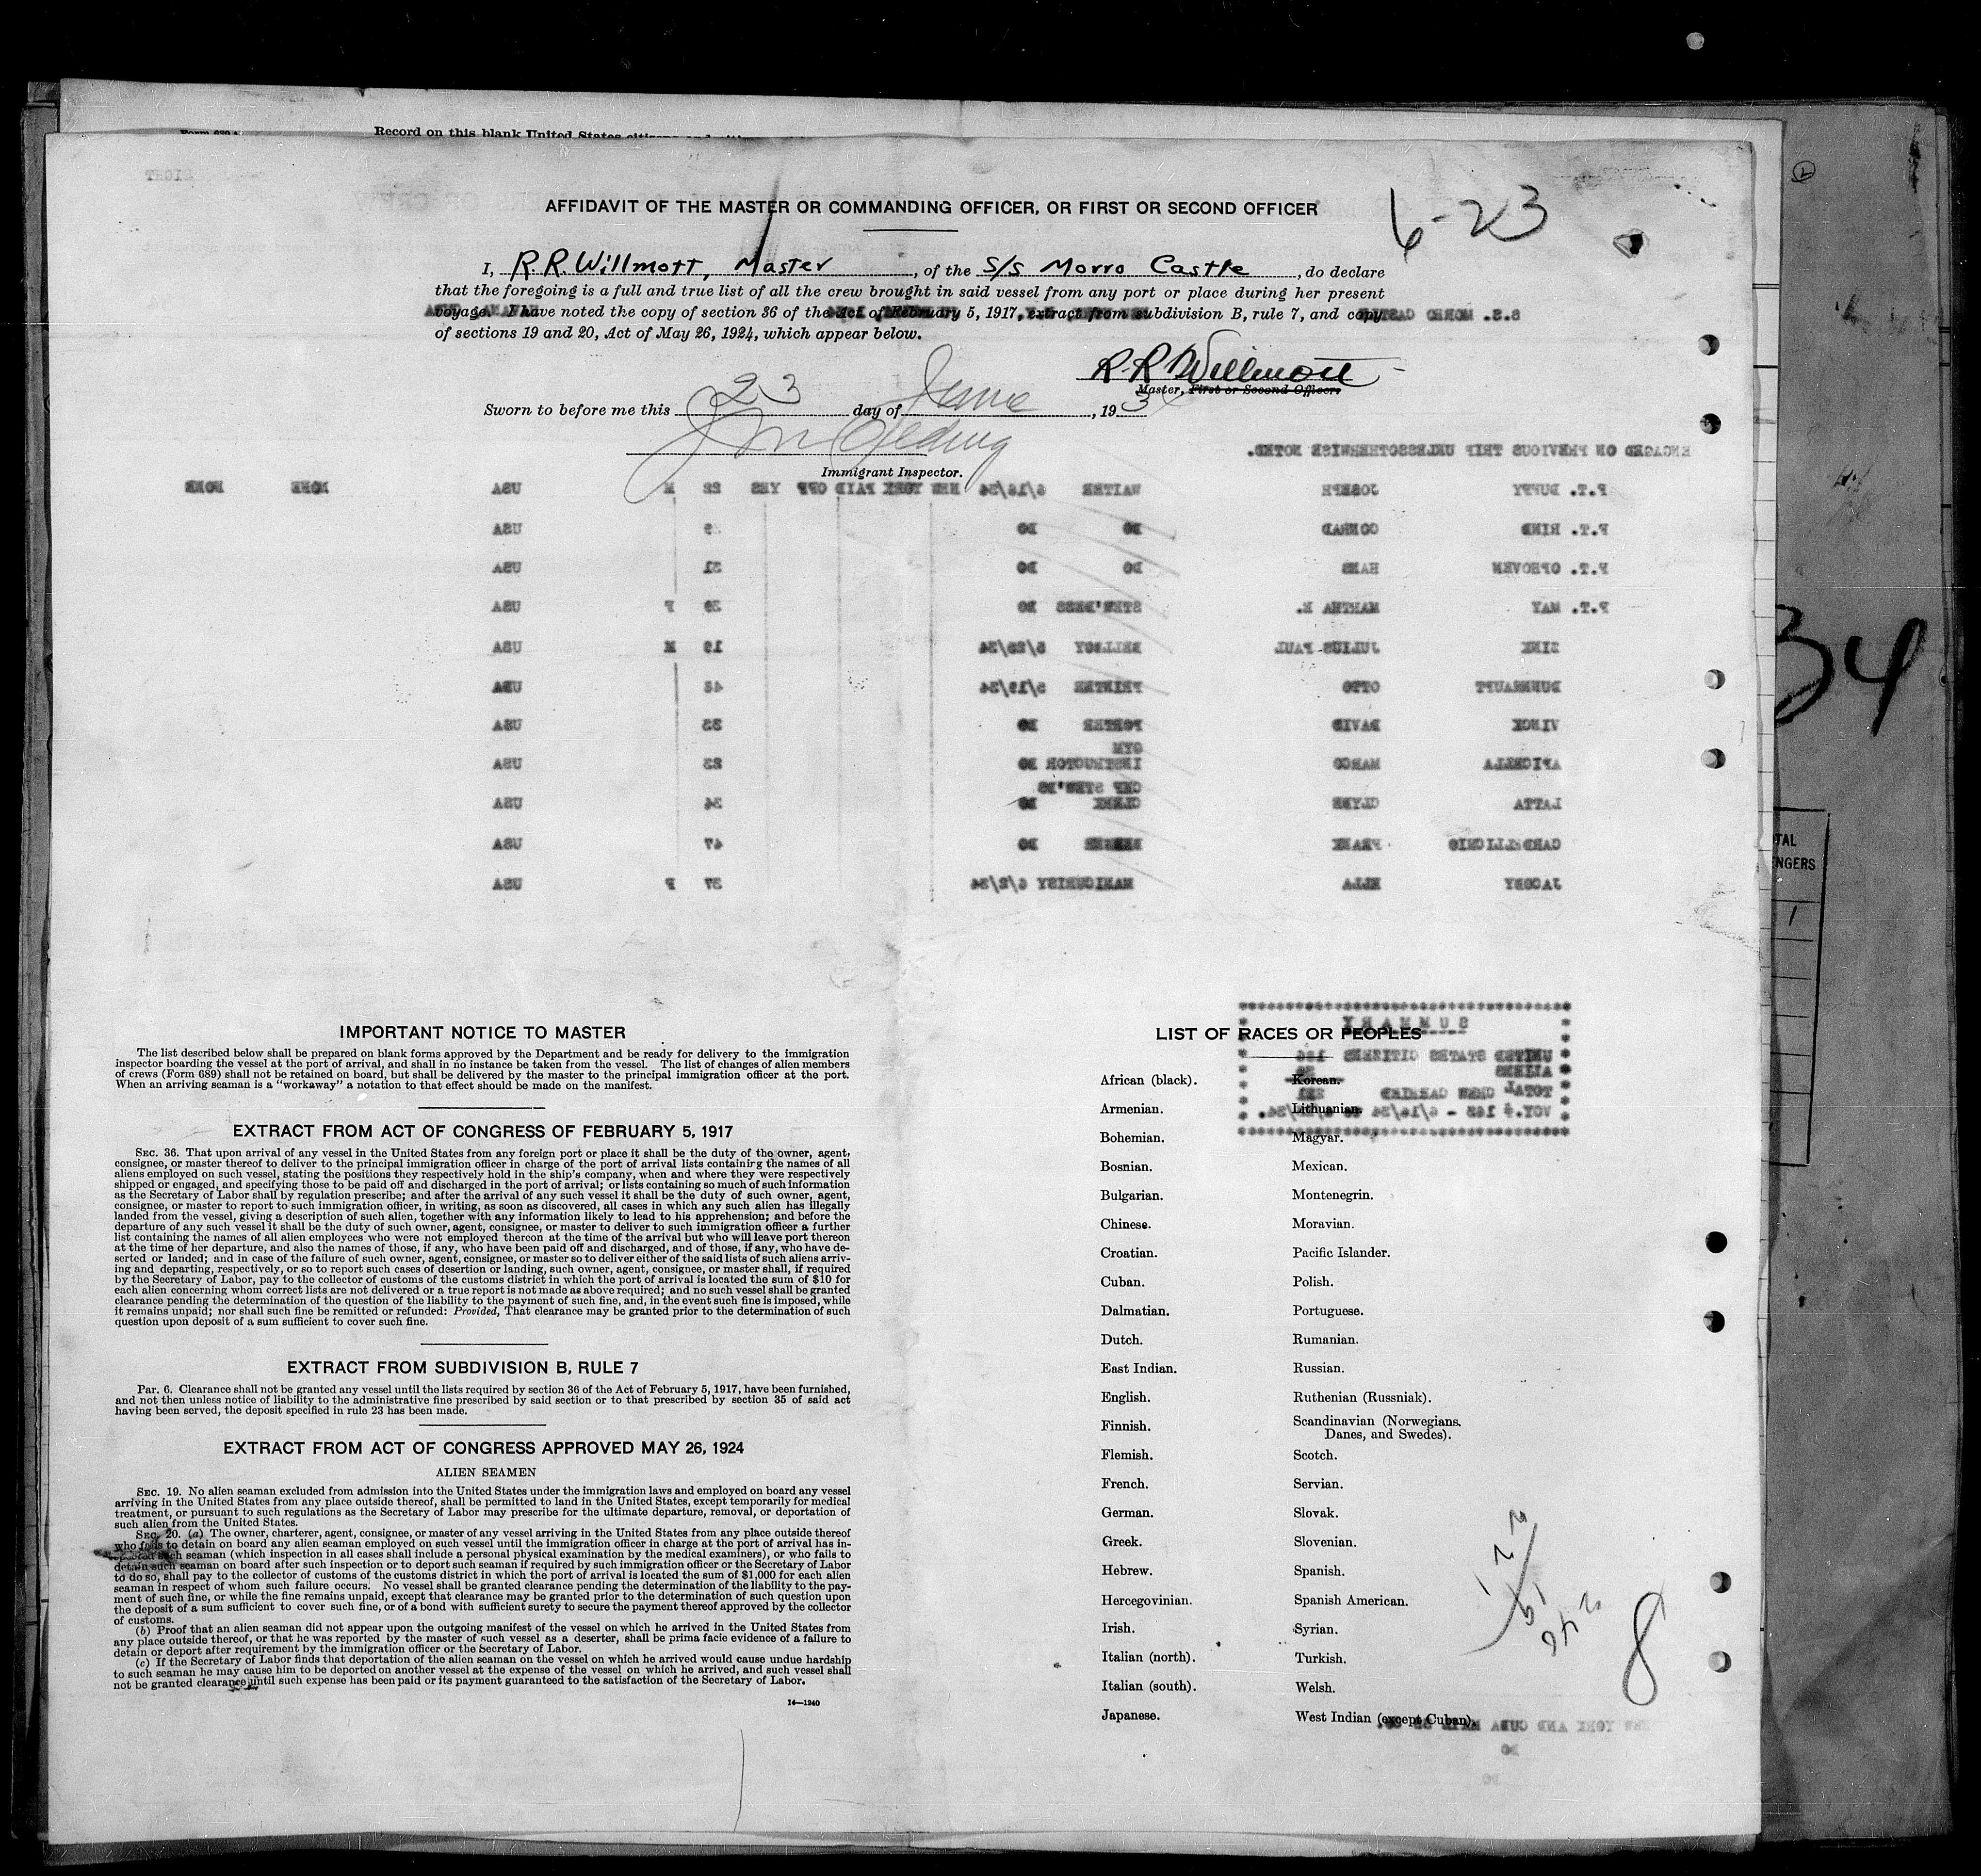 Record on this blank United States
AFFIDAVIT OF THE MASTER OR COMMANDING OFFICER, OR FIRST OR SECOND OFFICER
6-23
I, R. R. Willmott, Master, of the S/S Morro Castle, do declare
that the foregoing is a full and true list of all the crew brought in said vessel from any port or place during her present
voyage. I have noted the copy of section 36 of the Act of February 5, 1917, extract from subdivision B, rule 7, and copy
of sections 19 and 20, Act of May 26, 1924, which appear below.
R. R. Willmott
Master, First or Second Officer.
Sworn to before me this 23 day of June, 193
Immigrant Inspector.
34
TAL
NGERS
1
IMPORTANT NOTICE TO MASTER
The list described below shall be prepared on blank forms approved by the Department and be ready for delivery to the immigration
inspector boarding the vessel at the port of arrival, and shall in no instance be taken from the vessel. The list of changes of alien members
of crews (Form 689) shall not be retained on board, but shall be delivered by the master to the principal immigration officer at the port.
When an arriving seaman is a "workaway" a notation to that effect should be made on the manifest.
EXTRACT FROM ACT OF CONGRESS OF FEBRUARY 5, 1917
SEC. 36. That upon arrival of any vessel in the United States from any foreign port or place it shall be the duty of the owner, agent,
consignee, or master thereof to deliver to the principal immigration officer in charge of the port of arrival lists containing the names of all
aliens employed on such vessel, stating the positions they respectively hold in the ship's company, when and where they were respectively
shipped or engaged, and specifying those to be paid off and discharged in the port of arrival; or lists containing so much of such information
as the Secretary of Labor shall by regulation prescribe; and after the arrival of any such vessel it shall be the duty of such owner, agent,
consignee, or master to report to such immigration officer, in writing, as soon as discovered, all cases in which any such alien has illegally
landed from the vessel, giving a description of such alien, together with any information likely to lead to his apprehension; and before the
departure of any such vessel it shall be the duty of such owner, agent, consignee, or master to deliver to such immigration officer a further
list containing the names of all alien employees who were not employed thereon at the time of the arrival but who will leave port thereon
at the time of her departure, and also the names of those, if any, who have been paid off and discharged, and of those, if any, who have de-
serted or landed; and in case of the failure of such owner, agent, consignee, or master so to deliver either of the said lists of such aliens arriv-
ing and departing, respectively, or so to report such cases of desertion or landing, such owner, agent, consignee, or master shall, if required
by the Secretary of Labor, pay to the collector of customs of the customs district in which the port of arrival is located the sum of $10 for
each alien concerning whom correct lists are not delivered or a true report is not made as above required; and no such vessel shall be granted
clearance pending the determination of the question of the liability to the payment of such fine, and, in the event such fine is imposed, while
it remains unpaid; nor shall such fine be remitted or refunded: Provided, That clearance may be granted prior to the determination of such
question upon deposit of a sum sufficient to cover such fine.
EXTRACT FROM SUBDIVISION B, RULE 7
PAR. 6. Clearance shall not be granted any vessel until the lists required by section 36 of the Act of February 5, 1917, have been furnished,
and not then unless notice of liability to the administrative fine prescribed by said section or to that prescribed by section 35 of said act
having been served, the deposit specified in rule 23 has been made.
EXTRACT FROM ACT OF CONGRESS APPROVED MAY 26, 1924
ALIEN SEAMEN
SEC. 19. No alien seaman excluded from admission into the United States under the immigration laws and employed on board any vessel
arriving in the United States from any place outside thereof, shall be permitted to land in the United States, except temporarily for medical
treatment, or pursuant to such regulations as the Secretary of Labor may prescribe for the ultimate departure, removal, or deportation of
such alien from the United States.
SEC. 20. (a) The owner, charterer, agent, consignee, or master of any vessel arriving in the United States from any place outside thereof
who fails to detain on board any alien seaman employed on such vessel until the immigration officer in charge at the port of arrival has in-
spected such seaman (which inspection in all cases shall include a personal physical examination by the medical examiners), or who fails to
detain such seaman on board after such inspection or to deport such seaman if required by such immigration officer or the Secretary of Labor
to do so, shall pay to the collector of customs of the customs district in which the port of arrival is located the sum of $1,000 for each alien
seaman in respect of whom such failure occurs. No vessel shall be granted clearance pending the determination of the liability to the pay-
ment of such fine, or while the fine remains unpaid, except that clearance may be granted prior to the determination of such question upon
the deposit of a sum sufficient to cover such fine, or of a bond with sufficient surety to secure the payment thereof approved by the collector
of customs.
(b) Proof that an alien seaman did not appear upon the outgoing manifest of the vessel on which he arrived in the United States from
any place outside thereof, or that he was reported by the master of such vessel as a deserter, shall be prima facie evidence of a failure to
detain or deport after requirement by the immigration officer or the Secretary of Labor.
(c) If the Secretary of Labor finds that deportation of the alien seaman on the vessel on which he arrived would cause undue hardship
to such seaman he may cause him to be deported on another vessel at the expense of the vessel on which he arrived, and such vessel shall
not be granted clearance until such expense has been paid or its payment guaranteed to the satisfaction of the Secretary of Labor.
14—1240
LIST OF RACES OR PEOPLES
African (black).
Armenian.
Bohemian.
Bosnian.
Bulgarian.
Chinese.
Croatian.
Cuban.
Dalmatian.
Dutch.
East Indian.
English.
Finnish.
Flemish.
French.
German.
Greek.
Hebrew.
Hercegovinian.
Irish.
Italian (north).
Italian (south).
Japanese.
Korean.
Lithuanian.
Magyar.
Mexican.
Montenegrin.
Moravian.
Pacific Islander.
Polish.
Portuguese.
Rumanian.
Russian.
Ruthenian (Russniak).
Scandinavian (Norwegians,
Danes, and Swedes).
Scotch.
Servian.
Slovak.
Slovenian.
Spanish.
Spanish American.
Syrian.
Turkish.
Welsh.
West Indian (except Cuban).
8